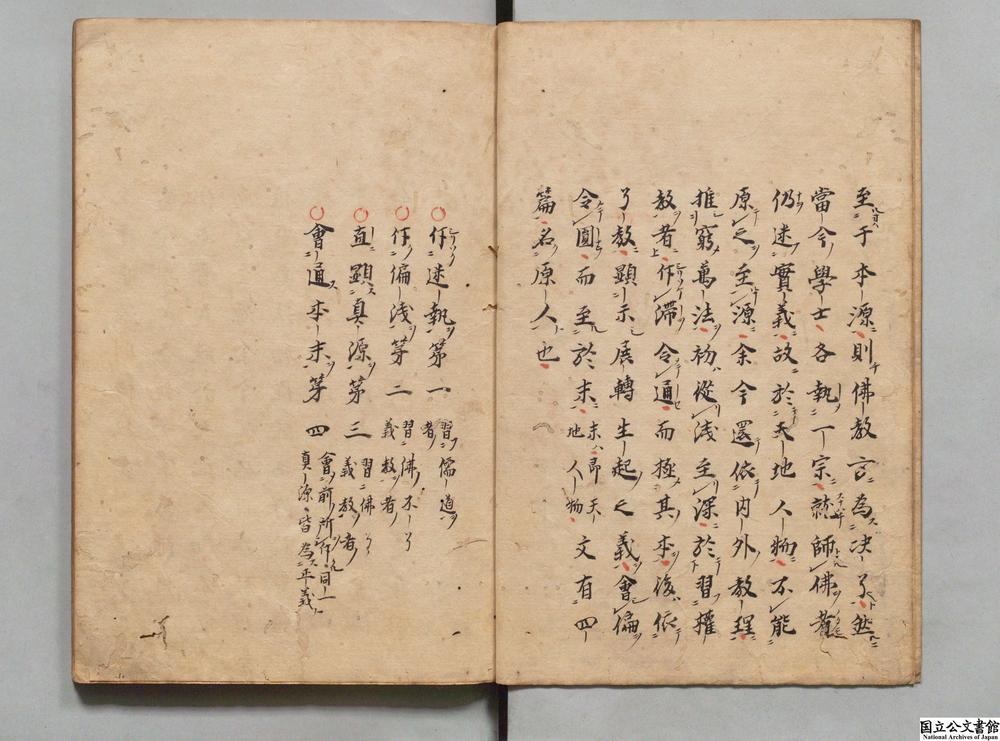 至于本源則佛教方為决了然
當今學士各執一宗就師佛者
仍迷實義故於天地人物不能
原之至源余今還依内外教理
推窮萬法初從浅至深於習權
教者斥滞令通而極其本後依
了教顯示展轉生起之義會偏
令圓而至於末末即天地人物文有四
篇名原人也
斥迷執第一習儒道者
斥偏浅第二習佛不了義教者
直顯真源第三習佛了義教者
會通本末第四會前所斥同一真源皆為正義
国立公文書館
National Archives of Japan